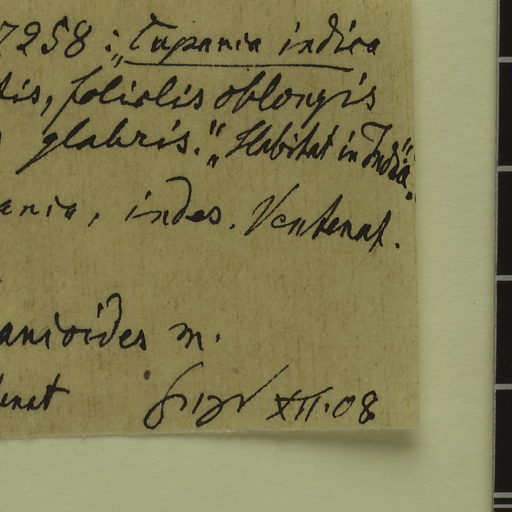 7258: „Cupania indica
tis, foliolis oblongis
glabris.“ „Habitat in India“.
ania, indes. Ventenat.
anioides m.
tenat XII.08